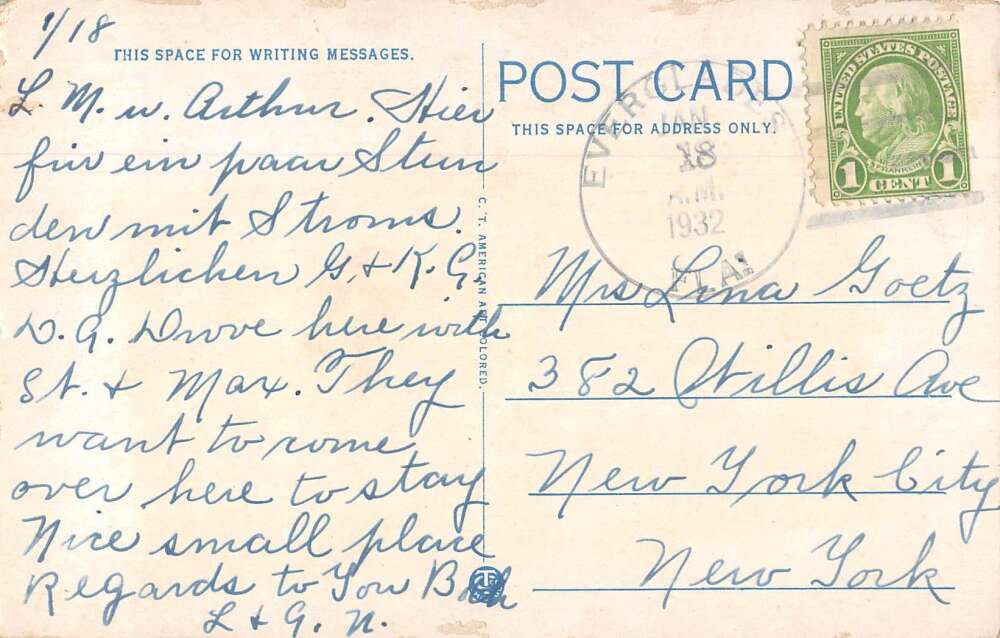 1/18
THIS SPACE FOR WRITING MESSAGES.
L. M. u. Arthur. Hier
für ein paar Stun
den mit Stroms.
Herzlichen G. + K. G.
D. G. Drove here with
St. + Max. They
want to come
over here to stay
Nice small place
Regards to You Both
L + G. N.
C. T. AMERICAN ART COLORED.
POST CARD
THIS SPACE FOR ADDRESS ONLY.
JAN
18
A.M.
1932
FLA.
UNITED STATES POSTAGE
FRANKLIN
1 CENT 1
Mrs Lina Goetz
382 Willis Ave
New York City
New York